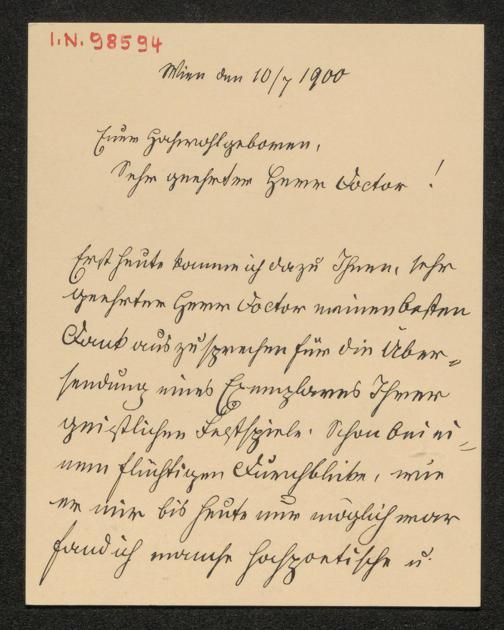 I.N. 98594
Wien den 10/7 1900
Euer Hochwohlgeboren,
Sehr geehrter Herr Doctor!
Erst heute komme ich dazu Ihnen, sehr
geehrter Herr Doctor meinen besten
Dank auszusprechen für die Über-
sendung eines Exemplares Ihrer
geistlichen Festspiele. Schon bei ei-
nem flüchtigen Durchblicke, wie
er mir bis heute nur möglich war
fand ich manche hochpoetische u.